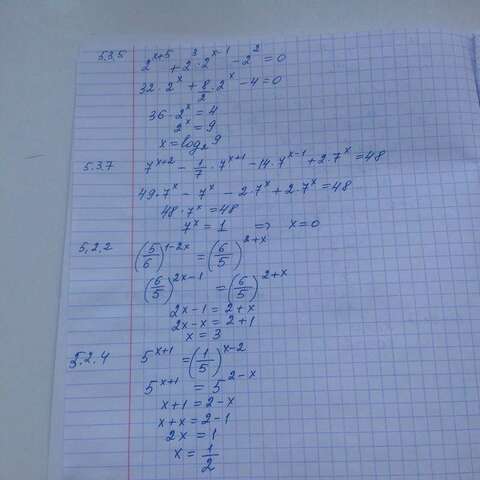 5.3.5 2^{x+5} + 2^3 · 2^{x-1} - 2^2 = 0
32 · 2^x + 8/2 · 2^x - 4 = 0
36 · 2^x = 4
2^x = 9
x = log₂ 9
5.3.7 7^{x+2} - 1/7 · 7^{x+1} - 14 · 7^{x-1} + 2 · 7^x = 48
49 · 7^x - 7^x - 2 · 7^x + 2 · 7^x = 48
48 · 7^x = 48
7^x = 1 ⇒ x = 0
5.2.2 (5/6)^{1-2x} = (6/5)^{2+x}
(6/5)^{2x-1} = (6/5)^{2+x}
2x - 1 = 2 + x
2x - x = 2 + 1
x = 3
5.2.4 5^{x+1} = (1/5)^{x-2}
5^{x+1} = 5^{2-x}
x + 1 = 2 - x
x + x = 2 - 1
2x = 1
x = 1/2